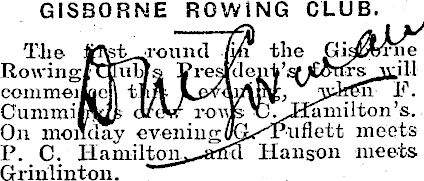 GISBORNE ROWING CLUB.
The first round in the Gisborne
Rowing Club's President's fours will
commence this evening, when F.
Cummings crew rows C. Hamilton's.
On monday evening G. Puflett meets
P. C. Hamilton, and Hanson meets
Grinlinton.